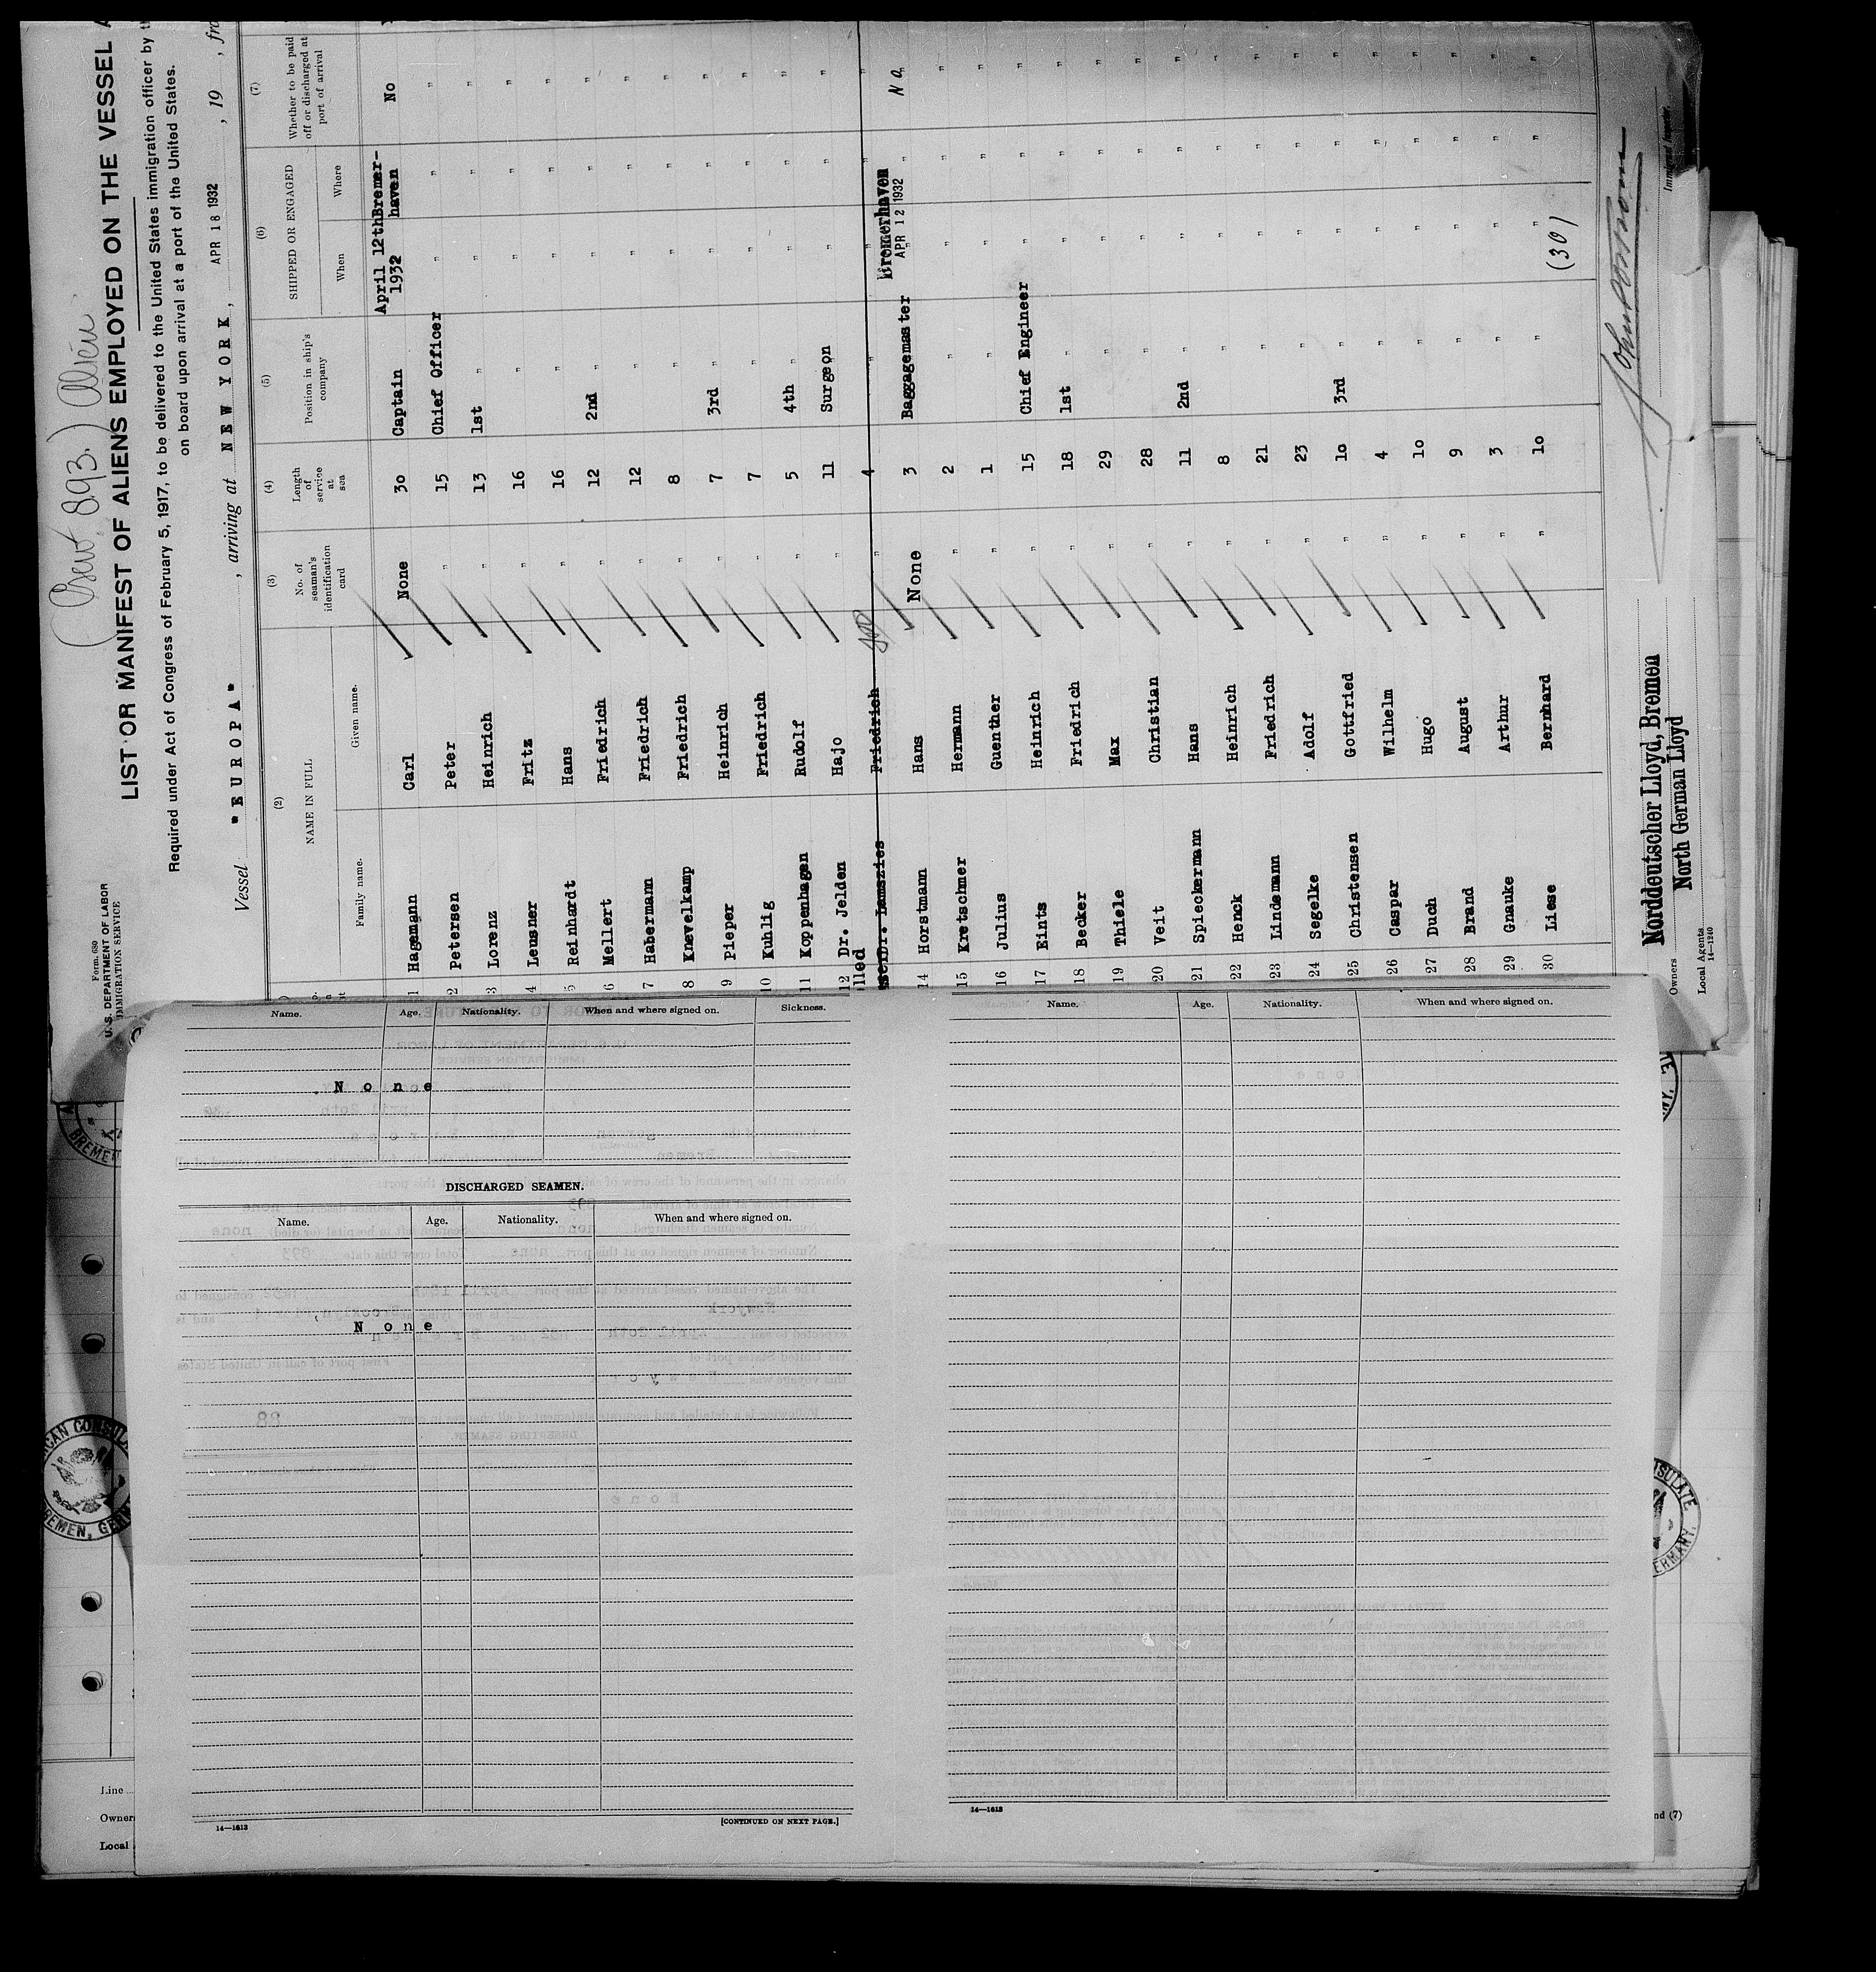 (Crew 893.) Alien
Form 680
U. S. DEPARTMENT OF LABOR
IMMIGRATION SERVICE
LIST OR MANIFEST OF ALIENS EMPLOYED ON THE VESSEL
Required under Act of Congress of February 5, 1917, to be delivered to the United States immigration officer by
on board upon arrival at a port of the United States.
Vessel "EUROPA", arriving at NEW YORK, APR 18 1932, 19 , fro
(2) (3) (4) (5) (6) (7)
NAME IN FULL
Family name. Given name.
No. of seaman's identification card
Length of service at sea
Position in ship's company
SHIPPED OR ENGAGED
When Where
Whether to be paid off or discharged at port of arrival
1 Hagemann Carl None 30 Captain April 12th 1932 Bremerhaven No
2 Petersen Peter " 15 Chief Officer " " "
3 Lorenz Heinrich " 13 1st " " " "
4 Leusner Fritz " 16 " " " "
5 Reinhardt Hans " 16 " " " "
6 Mellert Friedrich " 12 2nd " " " "
7 Habermann Friedrich " 12 " " " "
8 Knevelkamp Friedrich " 8 " " " "
9 Pieper Heinrich " 7 3rd " " " "
10 Kuhlig Friedrich " 7 " " " "
11 Koppenhagen Rudolf " 5 4th " " " "
12 Dr. Jelden Hajo " 11 Surgeon " " "
Dr. Lamszies Friedrich " 4 " " " "
14 Horstmann Hans None 3 Baggagemaster Bremerhaven APR 12 1932 No
15 Kretschmer Hermann " 2 " " " "
16 Julius Guenther " 1 " " " "
17 Eints Heinrich " 15 Chief Engineer " " "
18 Becker Friedrich " 18 1st " " " "
19 Thiele Max " 29 " " " "
20 Veit Christian " 28 " " " "
21 Spieckermann Hans " 11 2nd " " " "
22 Henck Heinrich " 8 " " " "
23 Lindemann Friedrich " 21 " " " "
24 Segelke Adolf " 23 " " " "
25 Christensen Gottfried " 10 3rd " " " "
26 Caspar Wilhelm " 4 " " " "
27 Duch Hugo " 10 " " " "
28 Brand August " 9 " " " "
29 Gnauke Arthur " 3 " " " "
30 Liese Bernhard " 10 " " " "
(30)
Owners Norddeutscher Lloyd, Bremen
North German Lloyd
Local Agents
14—1240
Immigrant Inspector.
Name. Age. Nationality. When and where signed on. Sickness.
None
DISCHARGED SEAMEN.
Name. Age. Nationality. When and where signed on.
None
14—1613 [CONTINUED ON NEXT PAGE.]
Name. Age. Nationality. When and where signed on.
14—1613
BREMEN
CAN CONSULA
BREMEN, GER
NSULATE
ERMANY.
NY.
Line
Owner
Local
nd (7)